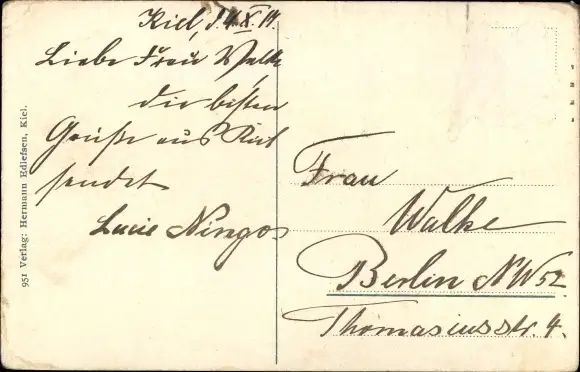 Kiel, d. 4.X.11.
Liebe Frau Walke
die besten
Grüße aus Kiel
sendet
Lucie
Frau
Walke
Berlin NW 52
Thomasiusstr. 4.
951 Verlag: Hermann Edlefsen, Kiel.